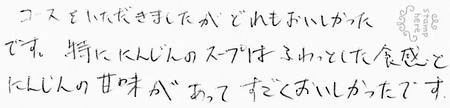 コースをいただきましたがどれもおいしかった
です。特ににんじんのスープはふわっとした食感と
にんじんの甘味があってすごくおいしかったです。
stamp
here